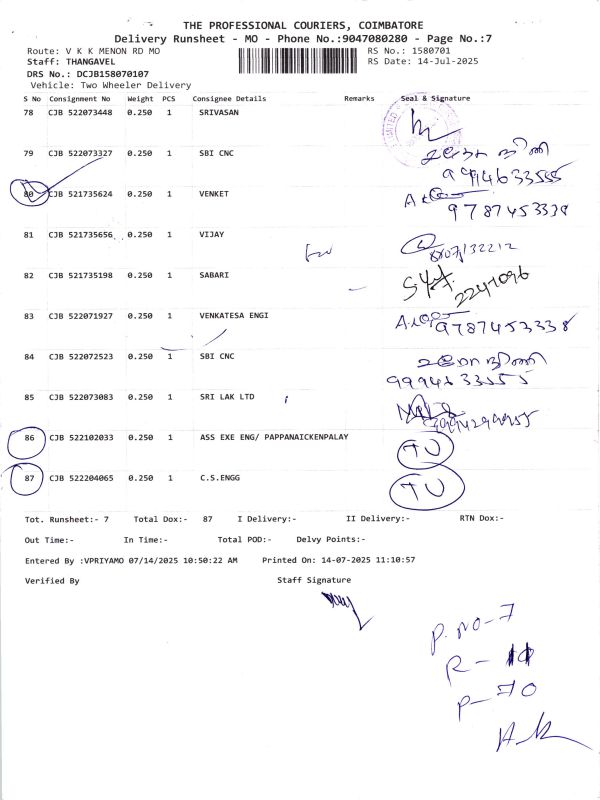 THE PROFESSIONAL COURIERS, COIMBATORE
Delivery Runsheet - MO - Phone No.:9047080280 - Page No.:7
Route: V K K MENON RD MO RS No.: 1580701
Staff: THANGAVEL RS Date: 14-Jul-2025
DRS No.: DCJB158070107
Vehicle: Two Wheeler Delivery
S No Consignment No Weight PCS Consignee Details Remarks Seal & Signature
78 CJB 522073448 0.250 1 SRIVASAN
79 CJB 522073327 0.250 1 SBI CNC
9994633555
80 CJB 521735624 0.250 1 VENKET
9787453338
81 CJB 521735656 0.250 1 VIJAY
82 CJB 521735198 0.250 1 SABARI
83 CJB 522071927 0.250 1 VENKATESA ENGI
9787453338
84 CJB 522072523 0.250 1 SBI CNC
9994633555
85 CJB 522073083 0.250 1 SRI LAK LTD
86 CJB 522102033 0.250 1 ASS EXE ENG/ PAPPANAICKENPALAY TU
87 CJB 522204065 0.250 1 C.S.ENGG TU
Tot. Runsheet:- 7 Total Dox:- 87 I Delivery:- II Delivery:- RTN Dox:-
Out Time:- In Time:- Total POD:- Delvy Points:-
Entered By :VPRIYAMO 07/14/2025 10:50:22 AM Printed On: 14-07-2025 11:10:57
Verified By Staff Signature
P. NO-7
R-
P-70